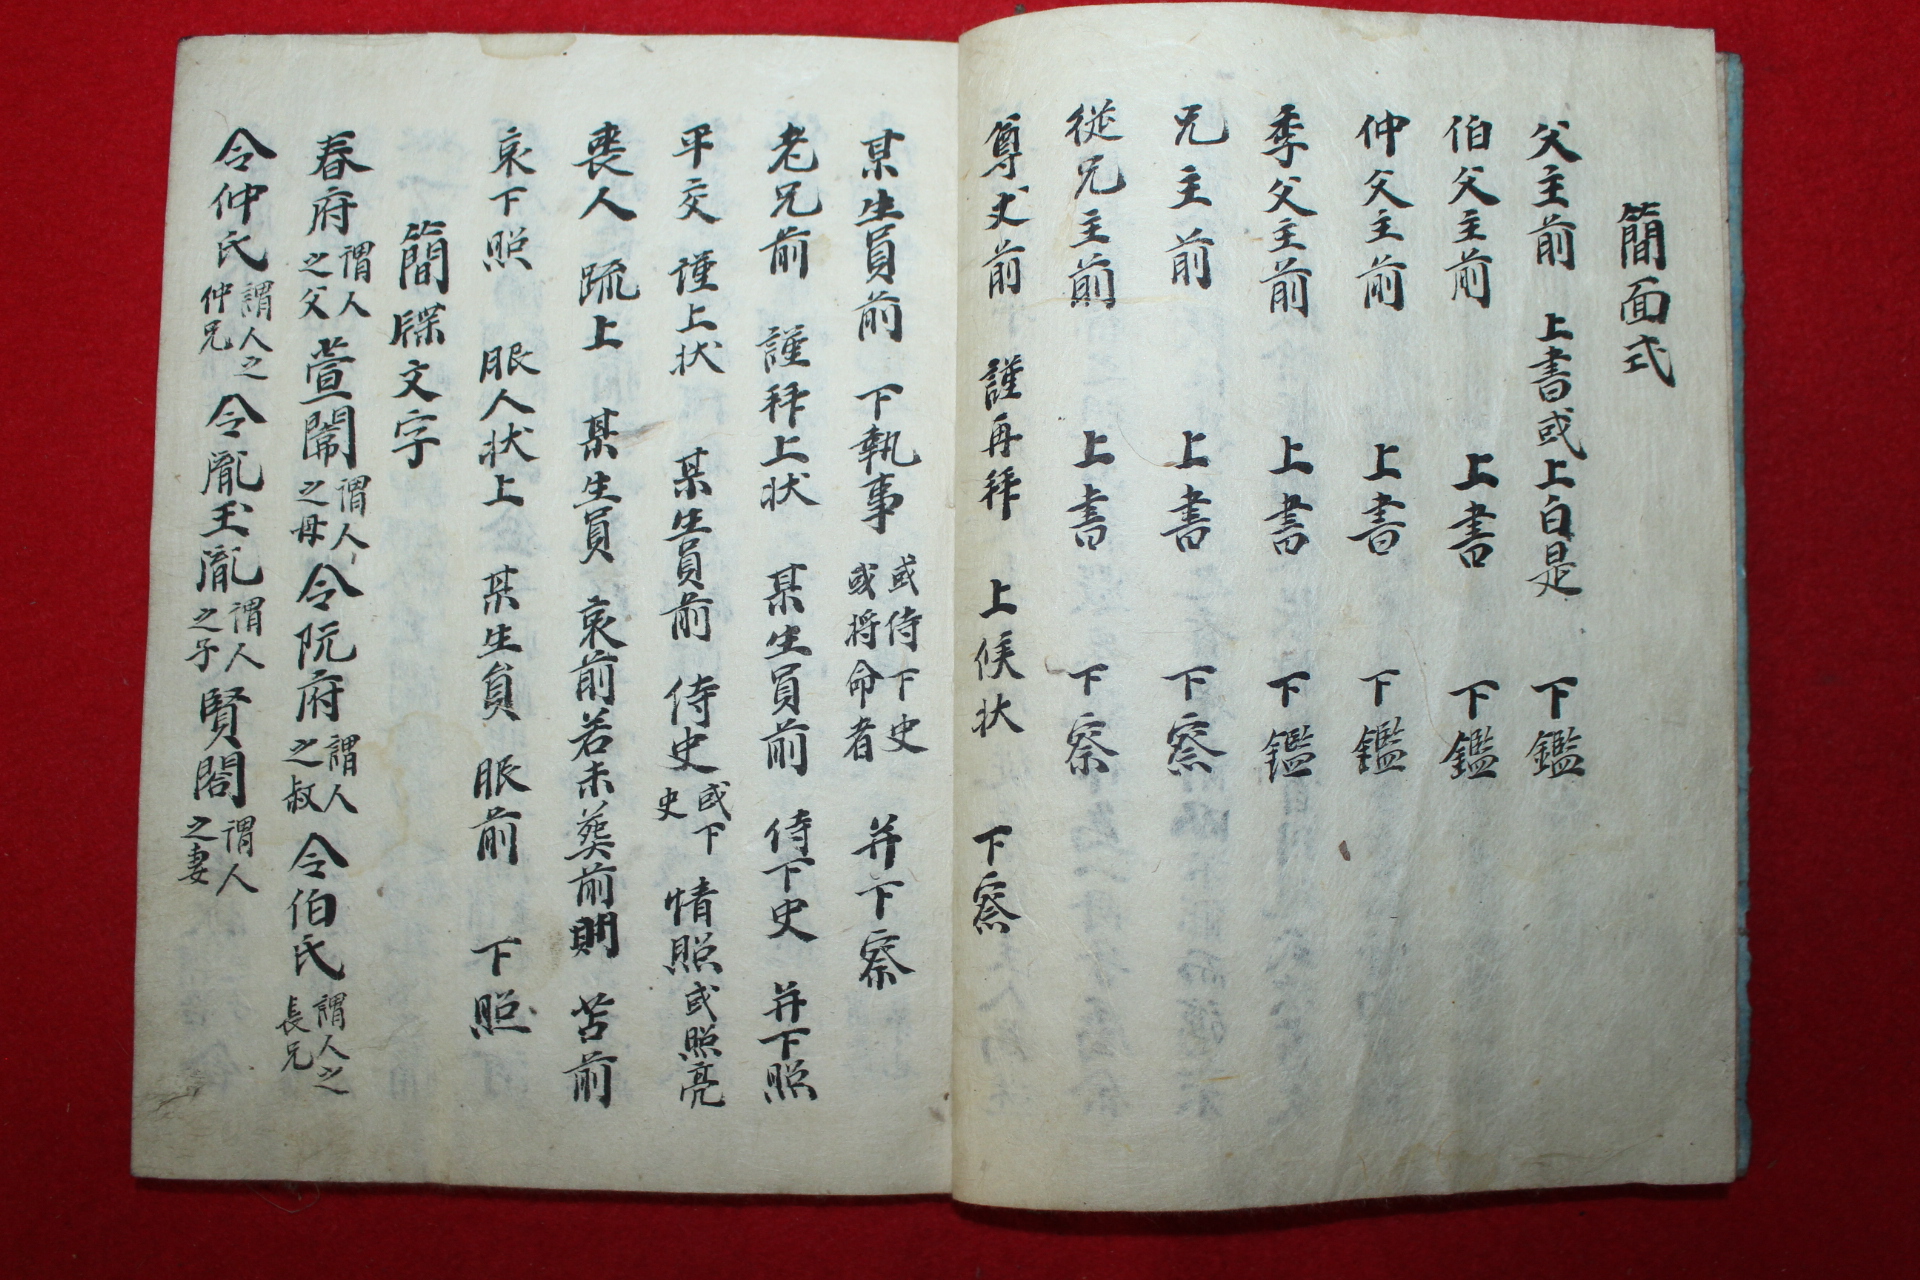 簡面式
父主前 上書或上白是 下鑑
伯父主前 上書 下鑑
仲父主前 上書 下鑑
季父主前 上書 下鑑
兄主前 上書 下察
從兄主前 上書 下察
尊丈前 謹再拜 上候狀 下察
某生員前 下執事 或侍下史 或將命者 幷下察
老兄前 謹拜上狀 某生員前 侍下史 幷下照
平交 謹上狀 某生員前 侍史 或下史 情照或照亮
喪人 疏上 某生員 哀前若未葬前則 苫前
哀下照 服人狀上 某生員 服前 下照
簡牒文字
春府 謂人之父 萱閣 謂人之母 令阮府 謂人之叔 令伯氏 謂人之長兄
令仲氏 謂人之仲兄 令胤玉胤 謂人之子 賢閤 謂人之妻